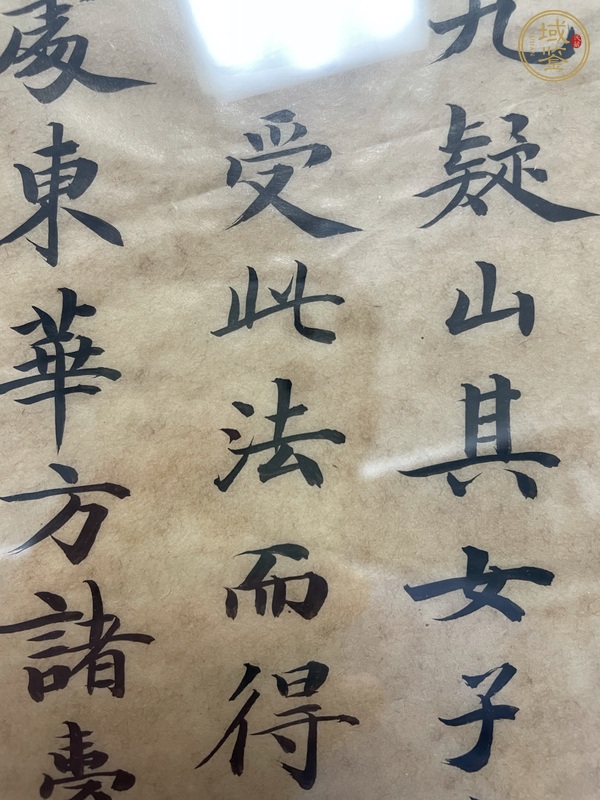 九疑山其女子
受此法而得
處東華方諸臺
域鉴